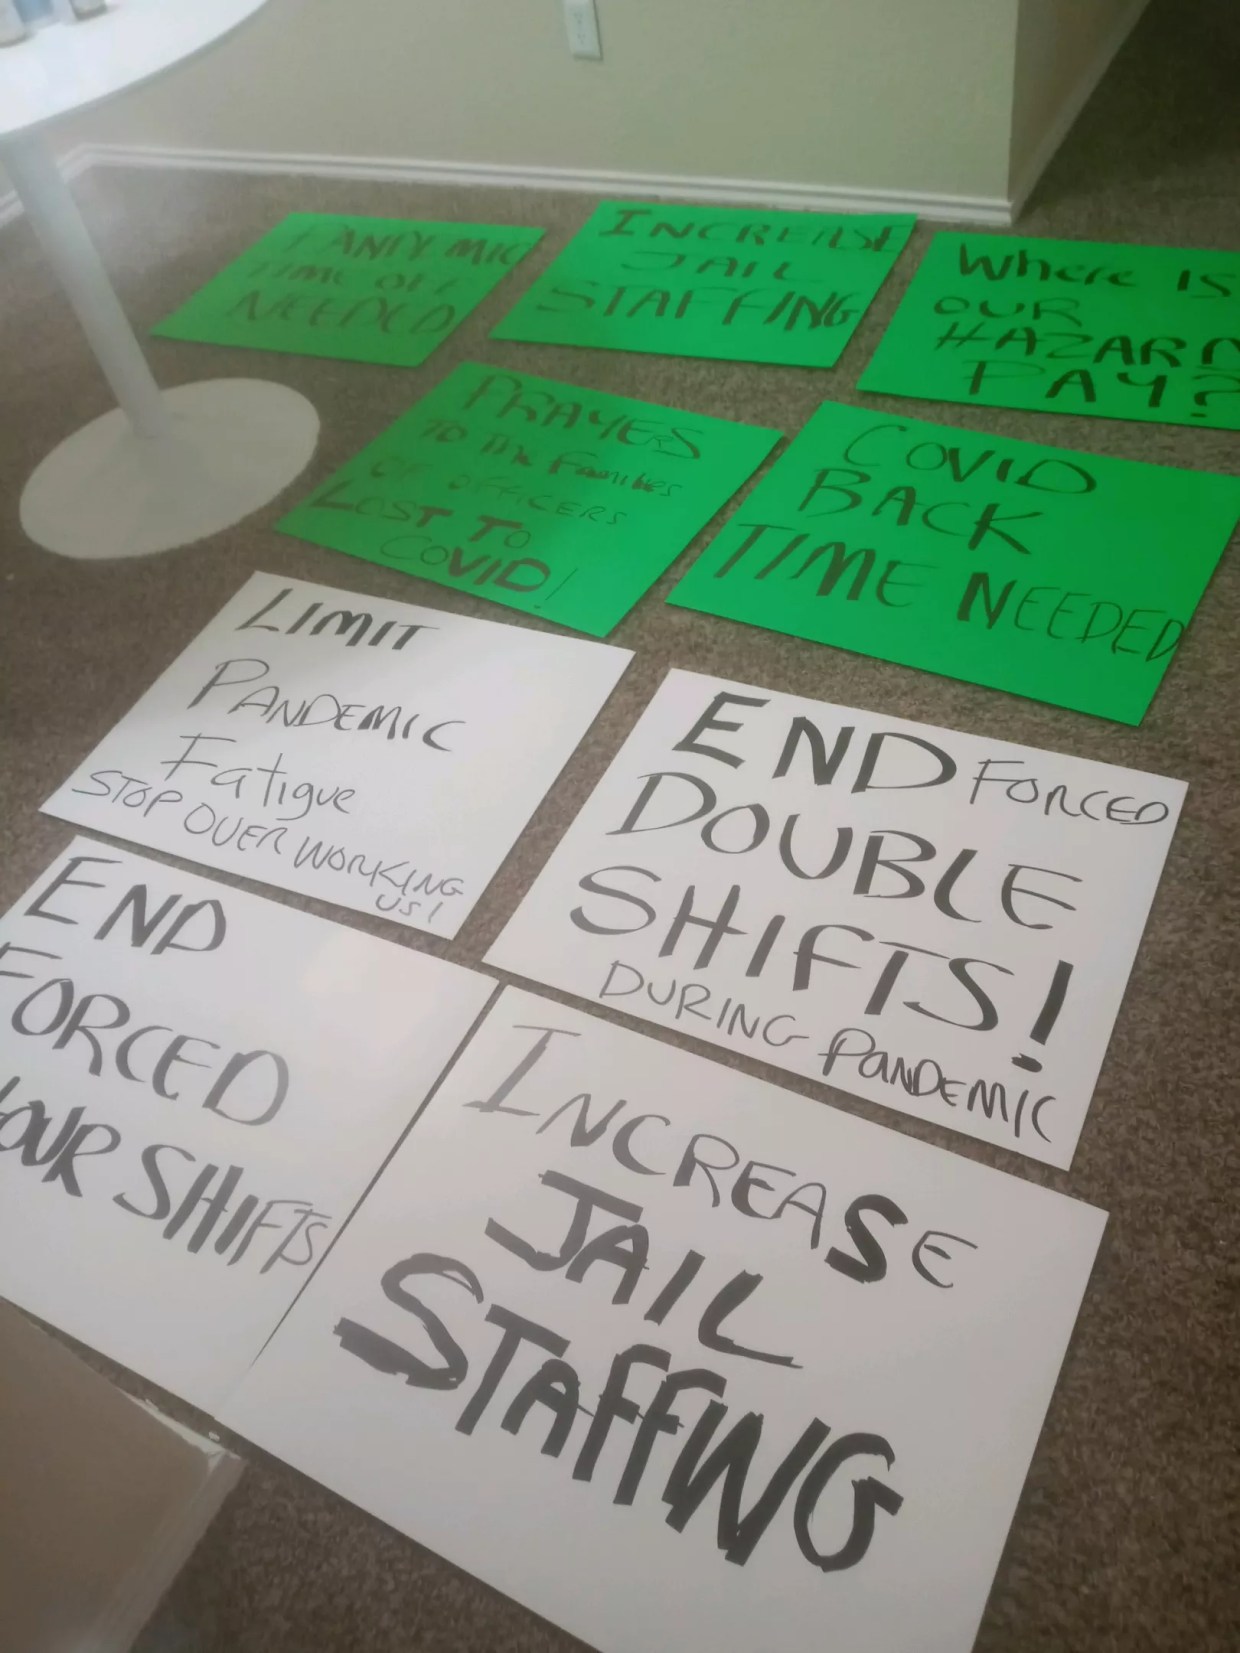 PANDEMIC
TIME OFF
NEEDED
INCREASE
JAIL
STAFFING
Where IS
OUR
HAZARD
PAY?
PRAYERS
TO THE FAMILIES
OF OFFICERS
LOST TO
COVID!
COVID
BACK
TIME NEEDED
LIMIT
PANDEMIC
Fatigue
STOP OVER WORKING
US!
END FORCED
DOUBLE
SHIFTS!
DURING PANDEMIC
END
FORCED
SHIFTS
INCREASE
JAIL
STAFFING